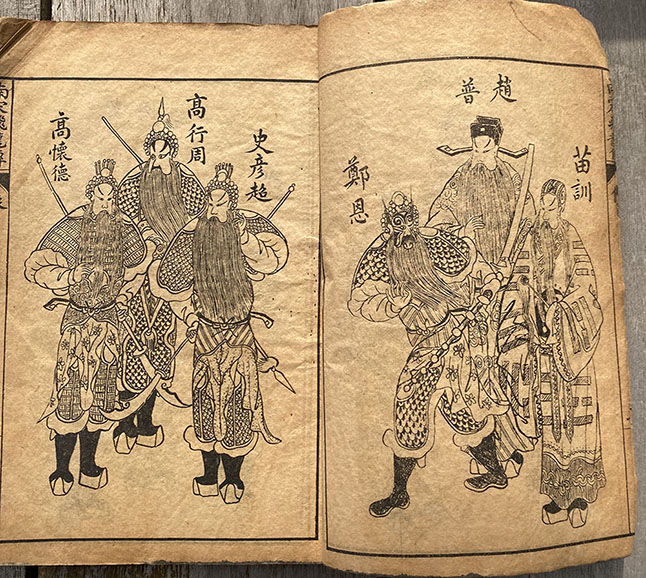 苗訓
趙普
鄭恩
史彥超
髙行周
髙懷德